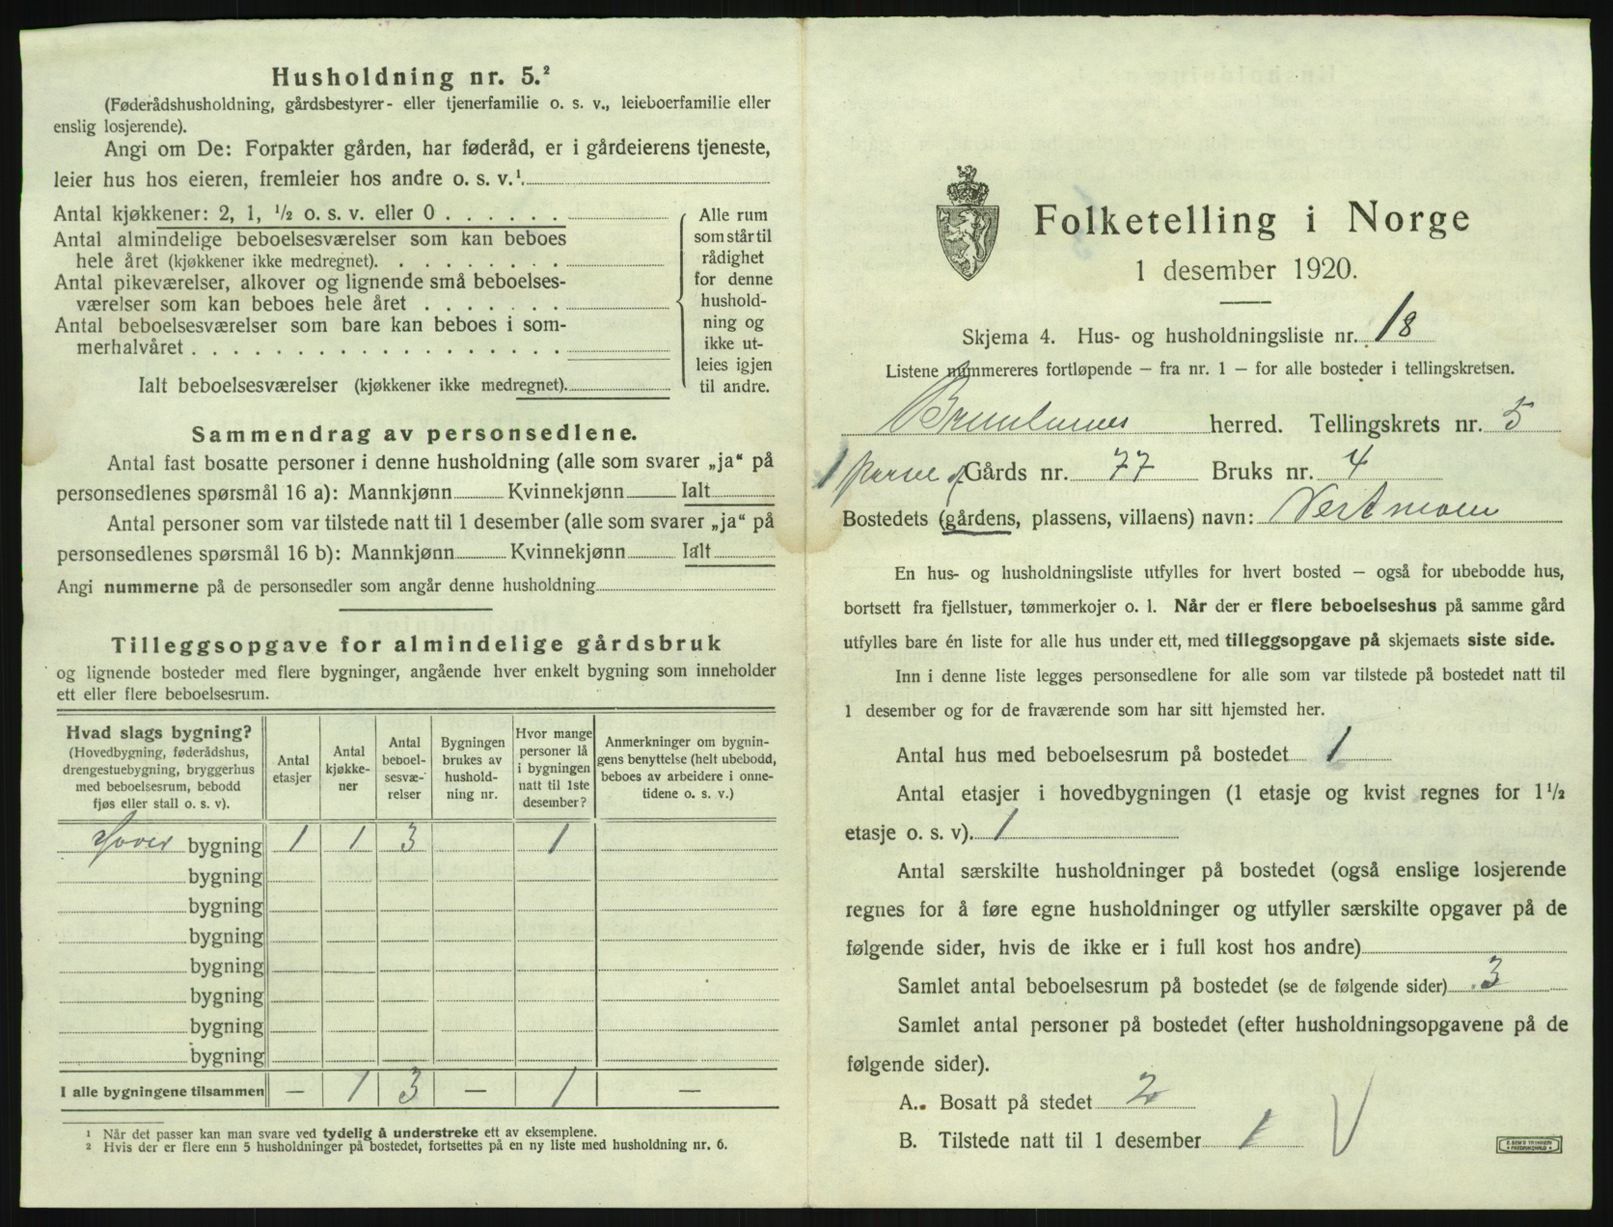 Husholdning nr. 5.²
(Føderådshusholdning, gårdsbestyrer- eller tjenerfamilie o. s. v., leieboerfamilie eller
enslig losjerende).
Angi om De: Forpakter gården, har føderåd, er i gårdeierens tjeneste,
leier hus hos eieren, fremleier hos andre o. s. v.¹
Antal kjøkkener: 2, 1, ½ o. s. v. eller 0 . . . . . .
Antal almindelige beboelsesværelser som kan beboes
hele året (kjøkkener ikke medregnet). . . . . . . .
Antal pikeværelser, alkover og lignende små beboelses-
værelser som kan beboes hele året . . . . . . .
Antal beboelsesværelser som bare kan beboes i som-
merhalvåret . . . . . . . . . . . . . . . . . .
Ialt beboelsesværelser (kjøkkener ikke medregnet).
Alle rum
som står til
rådighet
for denne
hushold-
ning og
ikke ut-
leies igjen
til andre.
Sammendrag av personsedlene.
Antal fast bosatte personer i denne husholdning (alle som svarer „ja“ på
personsedlenes spørsmål 16 a): Mannkjønn Kvinnekjønn Ialt
Antal personer som var tilstede natt til 1 desember (alle som svarer „ja“ på
personsedlenes spørsmål 16 b): Mannkjønn Kvinnekjønn Ialt
Angi nummerne på de personsedler som angår denne husholdning
Tilleggsopgave for almindelige gårdsbruk
og lignende bosteder med flere bygninger, angående hver enkelt bygning som inneholder
ett eller flere beboelsesrum.
Hvad slags bygning?
(Hovedbygning, føderådshus,
drengestuebygning, bryggerhus
med beboelsesrum, bebodd
fjøs eller stall o. s. v).
Antal
etasjer
Antal
kjøkke-
ner
Antal
beboel-
sesvæ-
relser
Bygningen
brukes av
hushold-
ning nr.
Hvor mange
personer lå
i bygningen
natt til 1ste
desember?
Anmerkninger om bygnin-
gens benyttelse (helt ubebodd,
beboes av arbeidere i onne-
tidene o. s. v.)
bygning 1 1 3 1
bygning
bygning
bygning
bygning
bygning
bygning
bygning
I alle bygningene tilsammen — 1 3 — 1 —
¹ Når det passer kan man svare ved tydelig å understreke ett av eksemplene.
² Hvis der er flere enn 5 husholdninger på bostedet, fortsettes på en ny liste med husholdning nr. 6.
Folketelling i Norge
1 desember 1920.
Skjema 4. Hus- og husholdningsliste nr. 18
Listene nummereres fortløpende — fra nr. 1 — for alle bosteder i tellingskretsen.
Brunlanes herred. Tellingskrets nr. 5
1 parsel af Gårds nr. 77 Bruks nr. 4
Bostedets (gårdens, plassens, villaens) navn: Vestmoen
En hus- og husholdningsliste utfylles for hvert bosted — også for ubebodde hus,
bortsett fra fjellstuer, tømmerkojer o. l. Når der er flere beboelseshus på samme gård
utfylles bare én liste for alle hus under ett, med tilleggsopgave på skjemaets siste side.
Inn i denne liste legges personsedlene for alle som var tilstede på bostedet natt til
1 desember og for de fraværende som har sitt hjemsted her.
Antal hus med beboelsesrum på bostedet 1
Antal etasjer i hovedbygningen (1 etasje og kvist regnes for 1½
etasje o. s. v). 1
Antal særskilte husholdninger på bostedet (også enslige losjerende
regnes for å føre egne husholdninger og utfyller særskilte opgaver på de
følgende sider, hvis de ikke er i full kost hos andre)
Samlet antal beboelsesrum på bostedet (se de følgende sider) 3
Samlet antal personer på bostedet (efter husholdningsopgavene på de
følgende sider).
A. Bosatt på stedet 2
B. Tilstede natt til 1 desember 1